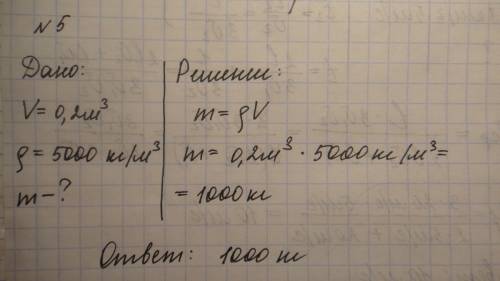 №5
Дано:
V = 0,2м³
ρ = 5000 кг/м³
m - ?
Решение:
m = ρV
m = 0,2м³ · 5000 кг/м³ =
= 1000 кг
Ответ: 1000 кг